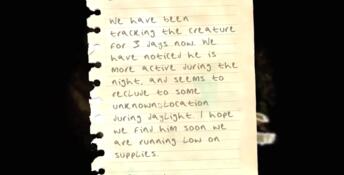 We have been
tracking the creature
for 3 days now. We
have noticed he is
more active during the
night, and seems to
reclude to some
unknown location
during daylight. I hope
we find him soon we
are running low on
supplies.